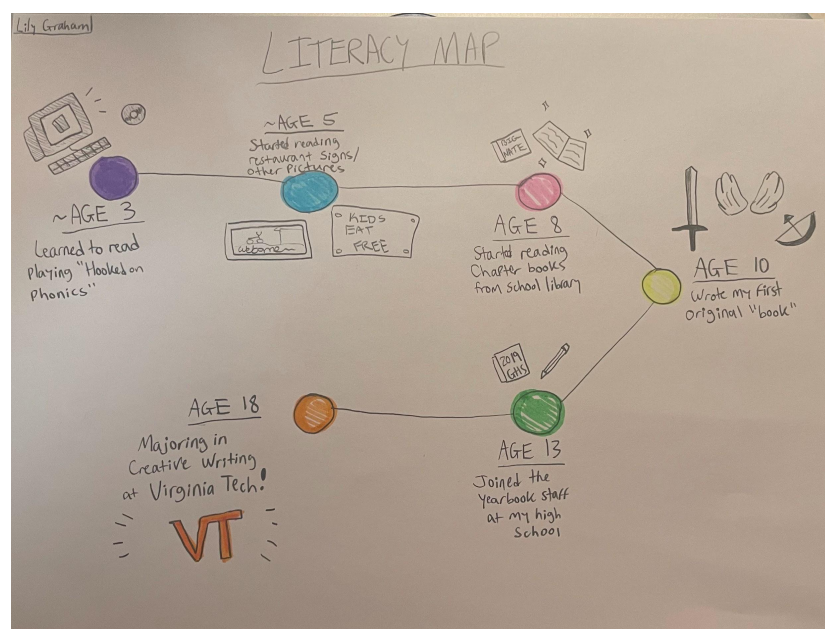 Lily Graham
LITERACY MAP
~AGE 3
Learned to read
Playing "Hooked on
Phonics"
~AGE 5
Started reading
restaurant signs/
other pictures
welcome
KIDS
EAT
FREE
BIG
NATE
AGE 8
Started reading
Chapter books
from school library
AGE 10
Wrote my first
original "book"
2019
GHS
AGE 13
Joined the
Yearbook staff
at my high
School
AGE 18
Majoring in
Creative Writing
at Virginia Tech!
VT